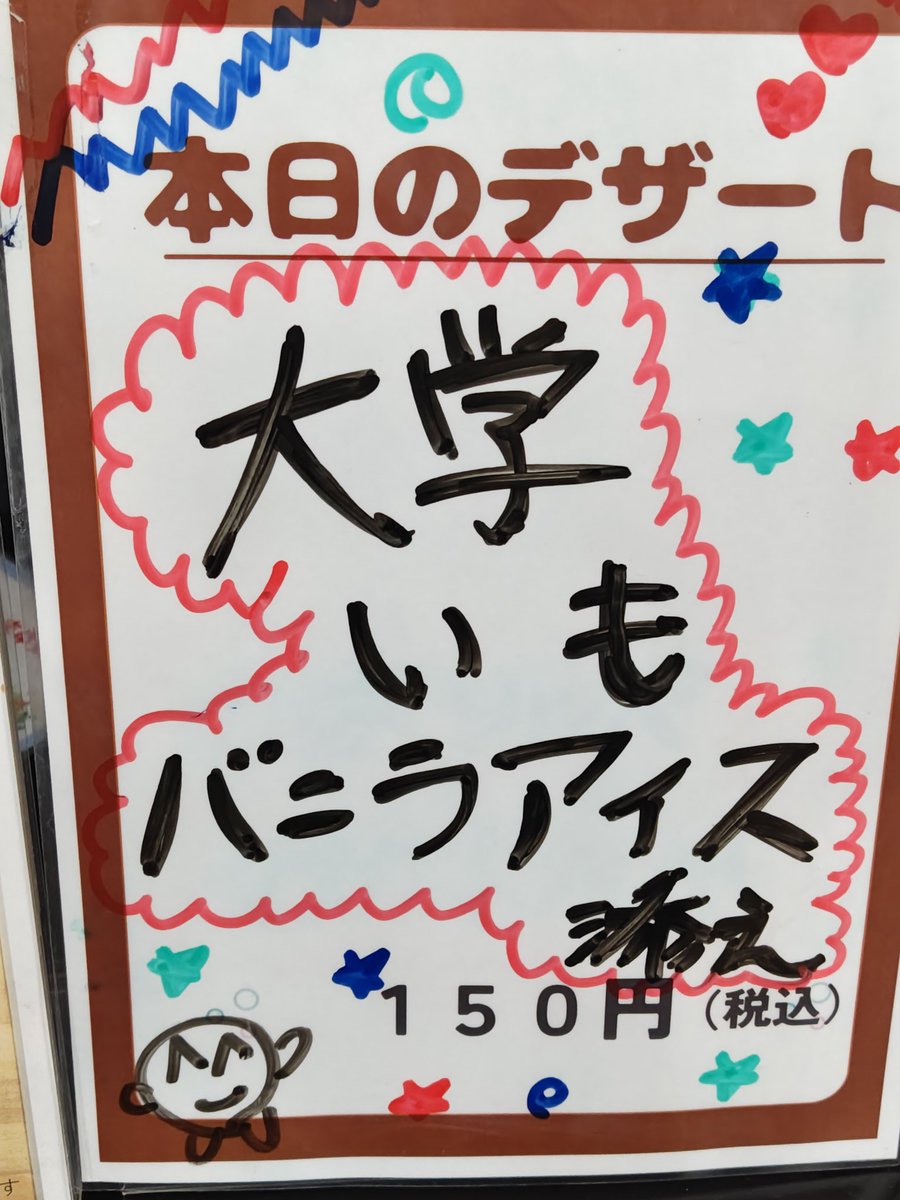 本日のデザート
大学
いも
バニラアイス
添え
１５０円（税込）
す